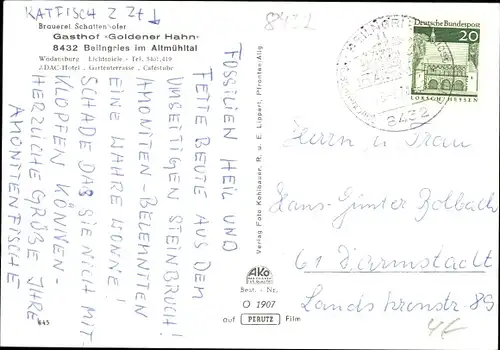 KATFISCH Z Zt↓
Brauerei Schattenhofer
Gasthof »Goldener Hahn«
8432 Beilngries im Altmühltal
Wodansburg - Lichtspiele - Tel. 5461,419
ADAC-Hotel - Gartenterrasse - Cafestube
FOSSILIEN HEIL UND
FETTE BEUTE AUS DEM
UMBERTIGEN STEINBRUCH!
AMONITEN-BELEMNITEN
EINE WAHRE WONNE!
SCHADE DAß SIE NICH MIT-
KLOPFEN KÖNNEN-
HERZLICHE GRÜßE IHRE
AMONITENFISCHE
645
Verlag Foto Kohlbauer, R. u. E. Lippert, Pfronten-Allg.
AKO
Best. - Nr.
O 1907
auf PERUTZ Film
8432
Deutsche Bundespost
20
LORSCH/HESSEN
8432
Herrn u. Frau
Hans-Günter Bolbach
61 Darmstadt
Landskronstr 89